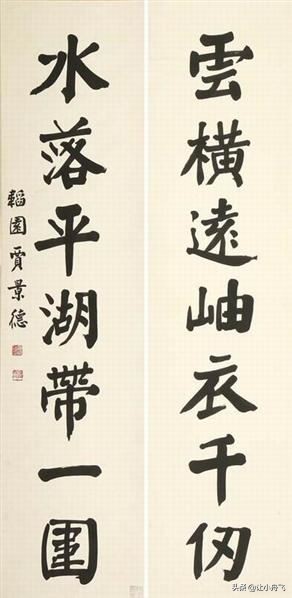 雲橫遠岫衣千仞
水落平湖帶一圍
韜園賈景德
头条 @让小舟飞